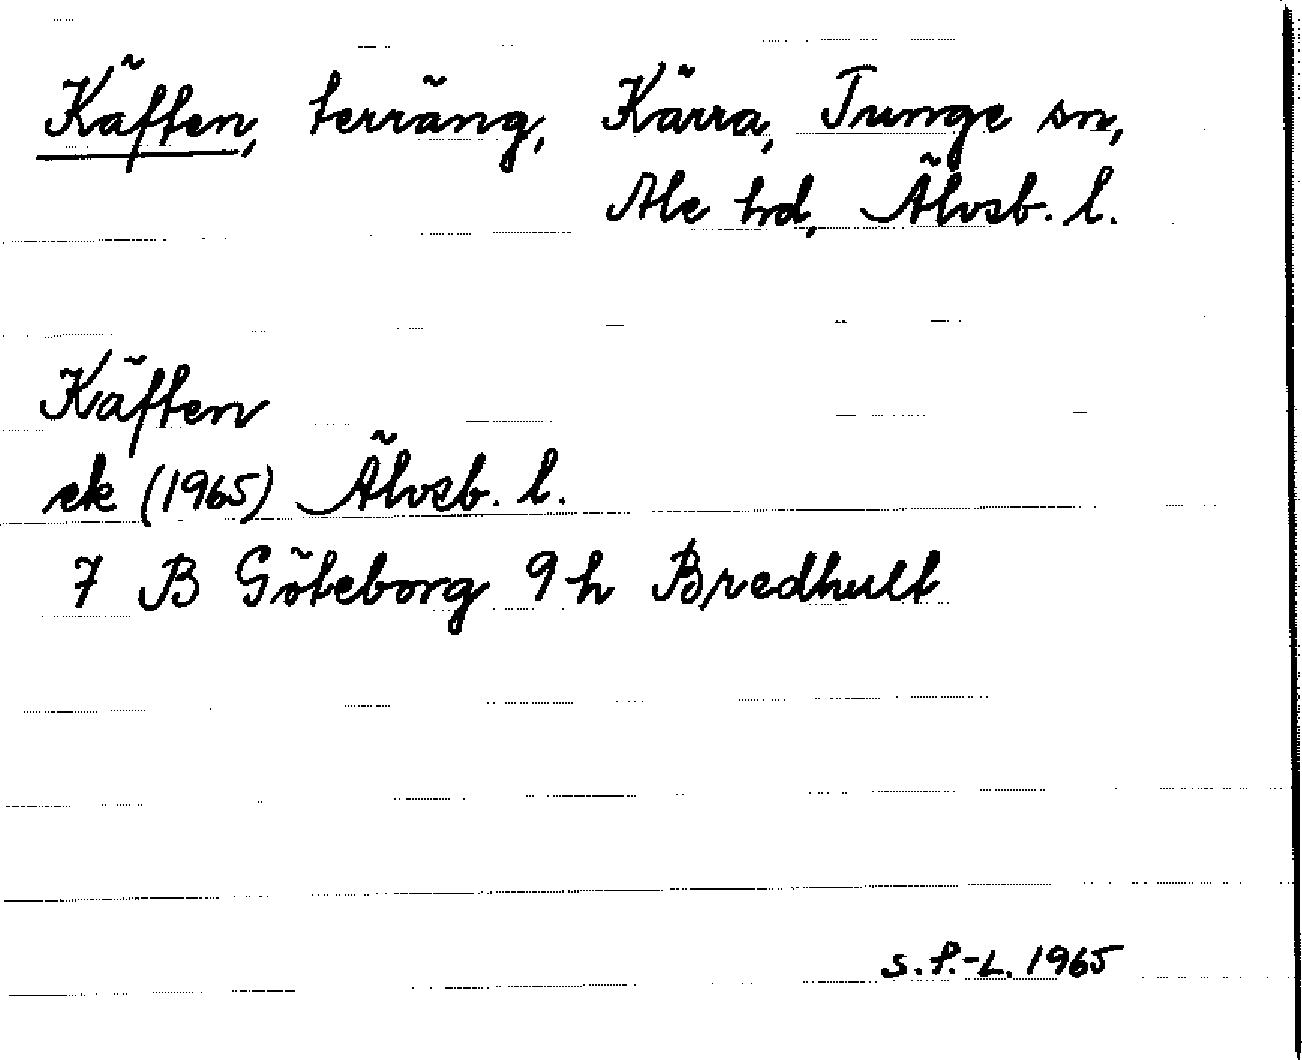 Käften, terräng, Kärra, Tunge sn,
Ale hd, Älvsb. l.
Käften
ek (1965) Älvsb. l.
7 B Göteborg 9 h Bredhult
S.P.-L. 1965